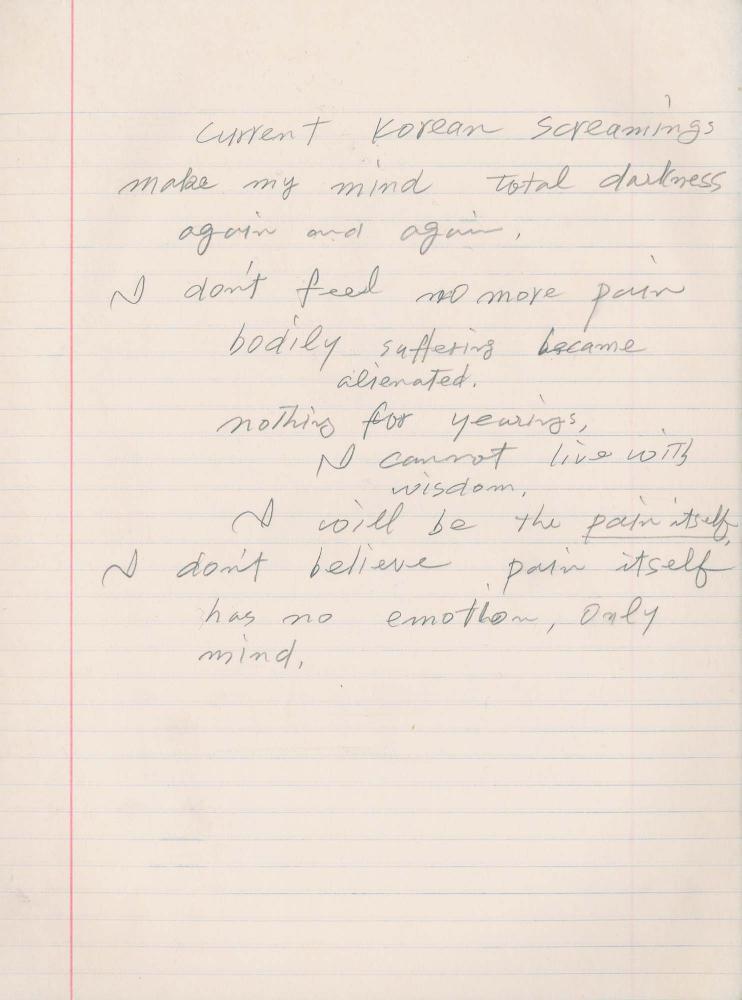 Current Korean Screamings
make my mind total darkness
again and again.
I don't feel no more pain
bodily suffering became
alienated.
nothing for yearings,
I cannot live with
wisdom.
I will be the pain itself,
I don't believe pain itself
has no emotion, only
mind.